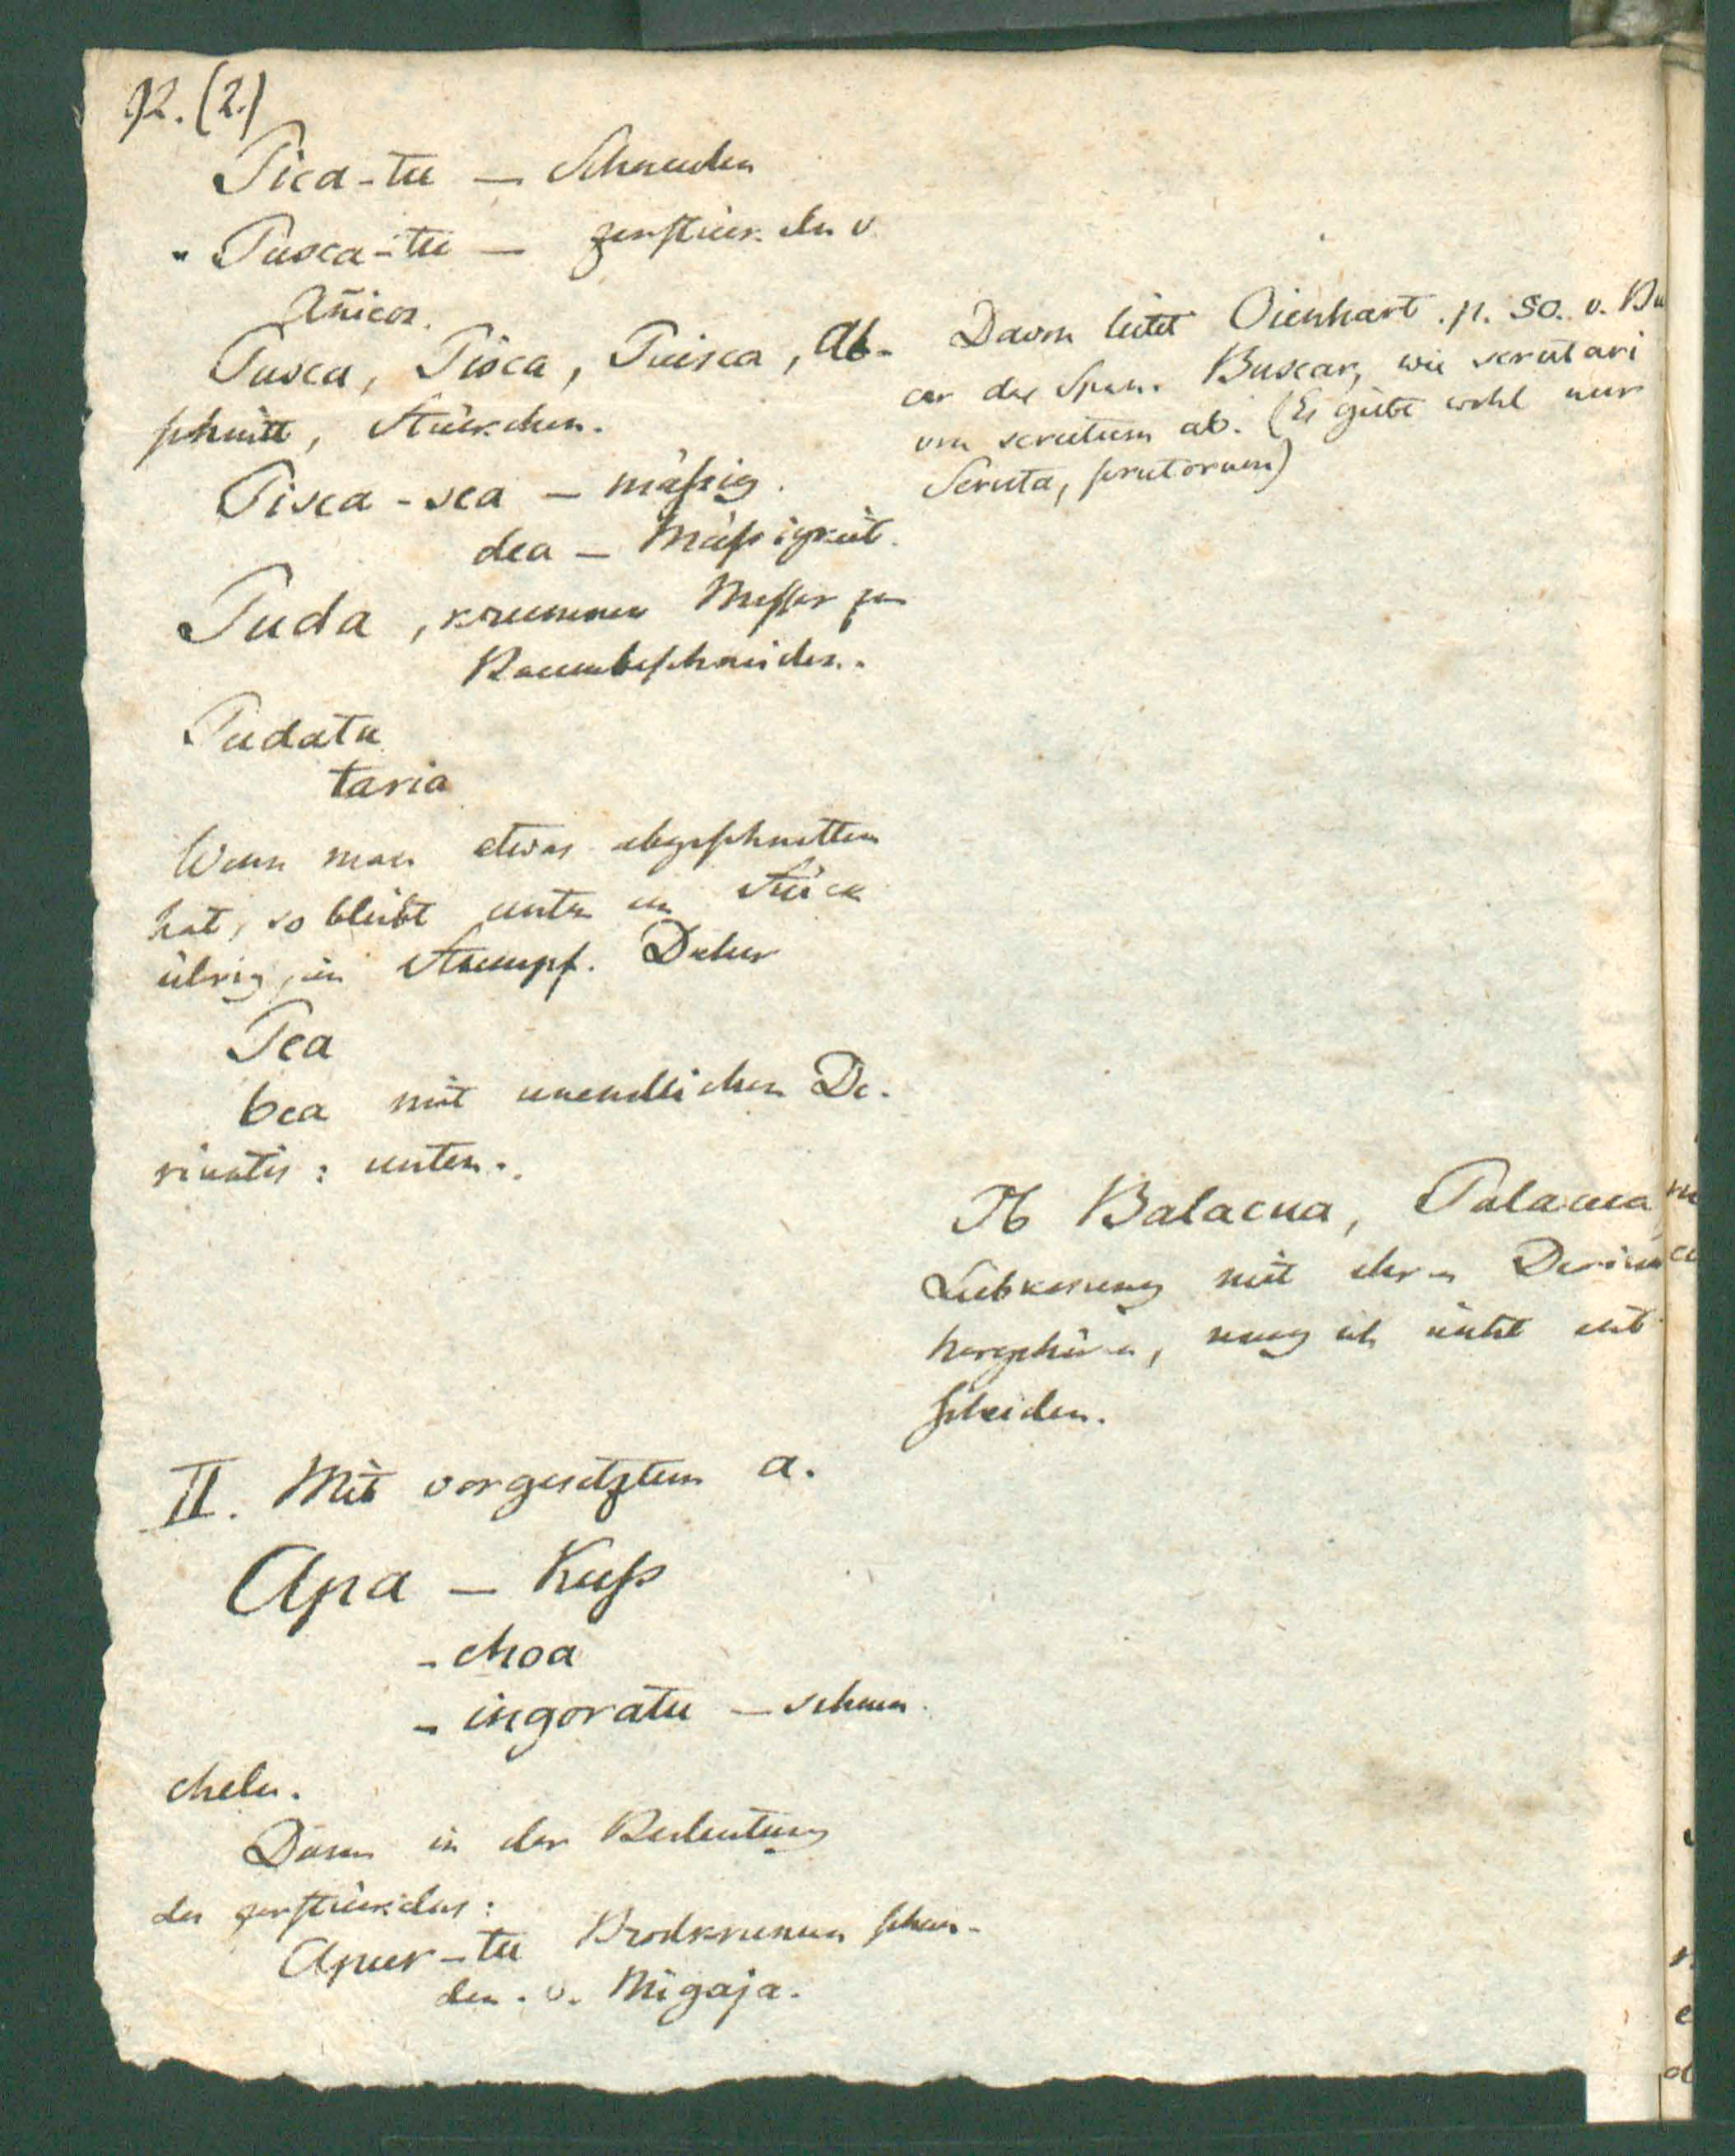 92. (2.)
Pica-tu — Schneiden
Pusca-tu — zerstückeln v.
Añicos.
Pusca, Pisca, Puisca, Ab-
schnitt, Stückchen.
Pisca-sca — mäßig.
dea — Mäßigkeit.
Puda, krummes Messer zu
Baumbeschneiden.
Pudatu
taria
Wenn man etwas abgeschnitten
hat, so bleibt unten ein Stück
übrig, ein Stumpf. Daher
Pea
bea mit unendlichen De-
rivatis: unten.
Davon leitet Oienhart. p. 50. v. Bu
car das Span. Buscar, wie scrutari
von scrutum ab. (Es giebt wohl nur
Scruta, scrutorum)
Ob Balacua, Palacua
Liebkosung mit ihren
hergehören, mag ich nicht ent-
scheiden.
II. Mit vorgesetztem a.
Apa — Kuß
- choa
- ingoratu — schmei-
cheln.
Dann in der Bedeutung
des zerstückelns:
Apur-tu Brodkrumen schnei-
den. v. Migaja.